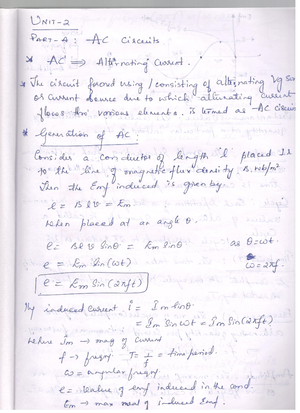 UNIT-2
PART-4: AC Circuits
* AC ⟹ Alternating Current.
* The circuit formed using / consisting of alternating Vg
or current source due to which alternating current
flows various elements, is termed as AC
* Generation of AC:
Consider a conductor of length l placed
to the line of magnetic flux density B.
Then the Emf induced is given by.
e = Blv = Em
When placed at an angle θ.
e = Blv Sinθ = Em Sinθ as θ=ωt.
e = Em Sin(ωt) ω=2πf.
e = Em Sin(2πft)
induced current i = Im Sinθ
= Im Sinωt = Im Sin(2πft)
where Im → mag of current
f → freqy. T = 1/f = time period.
ω = angular freqy.
e = value of emf induced in the cond.
Em → max of induced Emf.